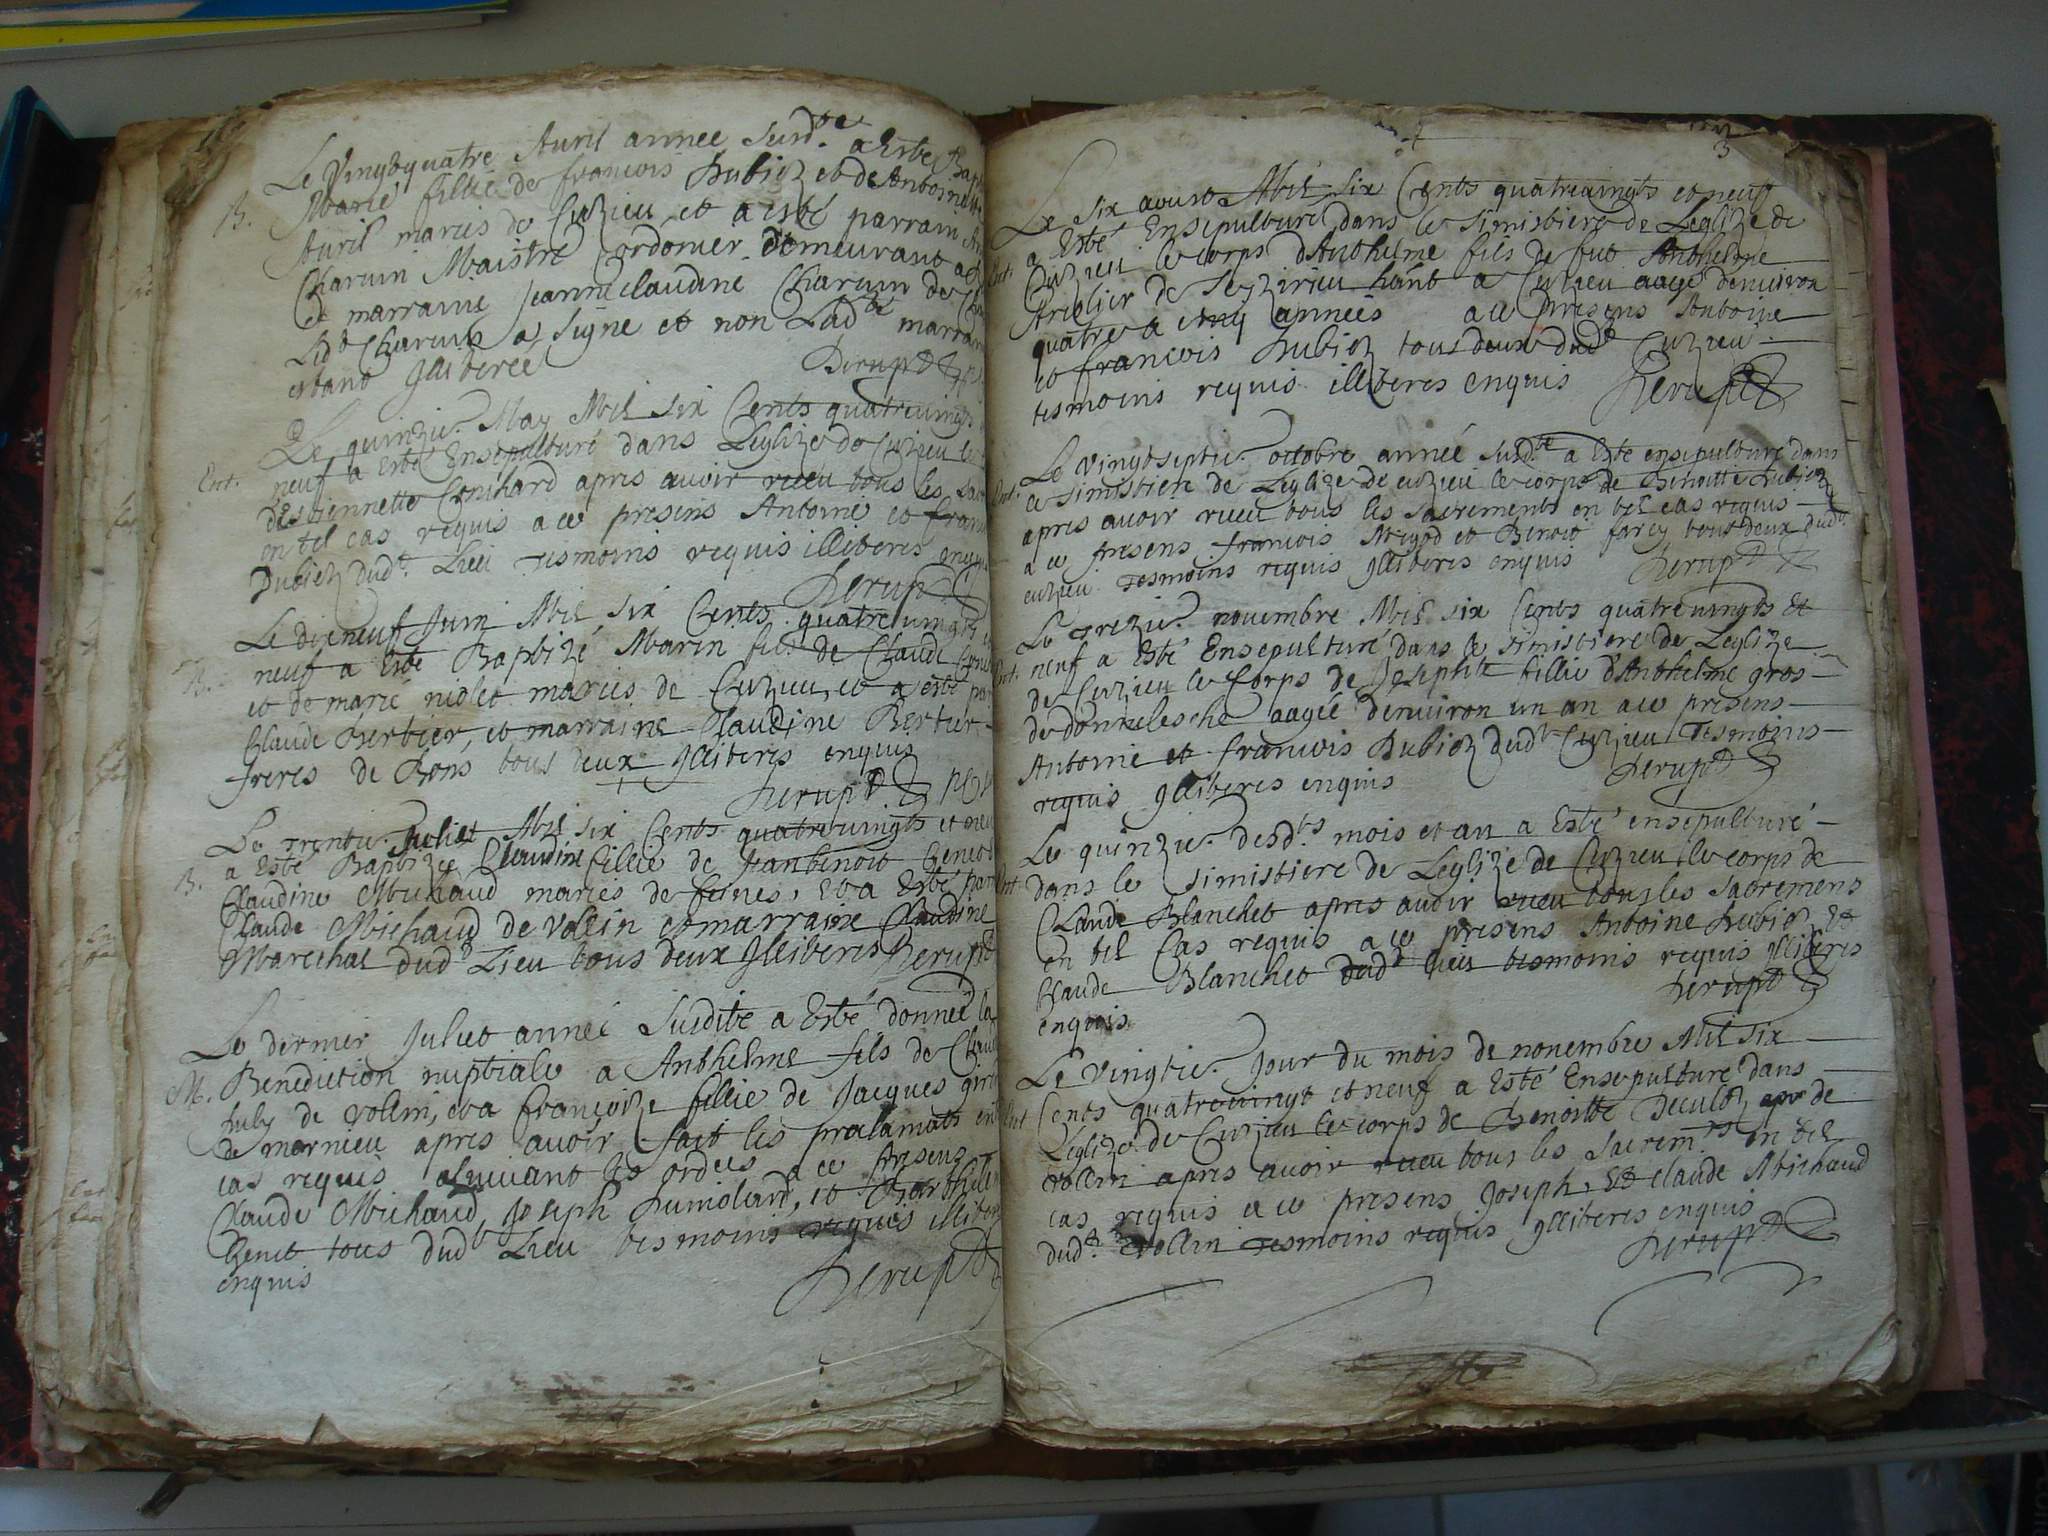 Le Vingtquatre Avril année susd.te a Esté Bap
B. Marie fillie de francois Dubiez et de Antoinette
Avril mariés de Cuzieu, et a esté parrain
Charcun Maistre Cordonier demeurant a
et marraine Jeanneclaudine Charcun de
Led.t Charcun a signé et non Lad.te marrai
estant Illiteree Derupt
Le quinzie. May Mil six Cents quatrevingts
Ent. neuf a Esté Ensepulturé dans Leglize de Cuzieu le
destiennette apres avoir receu tous les sac
en tel cas requis a ce presens Antoine et fran
Dubiez dud.t Lieu tesmoins requis illiteres enquis
Derupt
Le dixneuf Juin Mil six Cents quatrevingts
B. neuf a Esté Baptizé Marin fils de Claude
et de marie niolet mariés de Cuzieu, et a esté par
Claude Herbier, et marraine Claudine Bertier
freres de Bons tous deux Illiteres enquis
Derupt
Le trentie. Juliet Mil six Cents quatrevingts et neu
B. a Esté Baptizée Claudine fillie de Jeanbenoit Genet
Claudine Michaud mariés de et a Esté parr
Claude Michaud de Vollin et marraine Claudine
Marechal dud.t Lieu tous deux Illiteres Derupt
Le dernier Juliet année Susdite a Esté donnée la
M. Benediction nuptiale a Anthelme fils de Claud
July de vollin, et a françoize fillie de Jacques
de marnieu apres avoir fait les proclamats en
cas requis suivant les ordres a ce presens
Claude Michaud, Joseph Dumolard, et Barthelem
Genet tous dud.t Lieu tesmoins requis illiter
enquis Derupt
3
Le six aoust Mil six Cents quatrevingts et neuf
a Esté Ensepulturé dans le simistiere de Leglize de
Ent. Cuzieu le corps d'Anthelme fils de fut Anthelme
de Seyzirieu hant a Cuzieu aagé denviron
quatre a cinq années a ce presens Antoine
et francois Dubiez tous deux dud.t Cuzieu
tesmoins requis illiteres enquis Derupt
Le Vingtseptie. octobre année susd.te a Esté ensepulturé dans
Ent. le simistiere de Leglize de cuzieu le corps de Benoitte Dubiez
apres avoir receu tous les sacrements en tel cas requis
a ce presens francois et Benoit farcy tous deux dud.t
cuzieu Tesmoins requis Illiteres enquis Derupt
Le Trezie. novembre Mil six Cents quatrevingts Et
Ent. neuf a Esté Ensepulturé dans le simistiere de Leglize
de Cuzieu le Corps de Josephte fillie d'Anthelme gros
de donnelesche aagée denviron un an a ce presens
Antoine et francois Dubiez dud.t Cuzieu Tesmoins
requis Illiteres enquis Derupt
Le quinzie. desd.ts mois et an a Esté ensepulturé
Ent. dans le simistiere de Leglize de Cuzieu le corps de
Claude Blanchet apres avoir receu tous les sacremens
en tel Cas requis a ce presens Antoine Dubiez Et
Claude Blanchet dud.t Lieu tesmoins requis Illiteres
enquis Derupt
Le Vingtie. Jour du mois de novembre Mil six
Ent Cents quatrevingt et neuf a Esté Ensepulturé dans
Leglize de Cuzieu le corps de Benoitte de
vollin apres avoir receu tous les sacrem.ts en tel
cas requis a ce presens Joseph, Et claude Michaud
dud.t vollin Tesmoins requis Illiteres enquis
Derupt